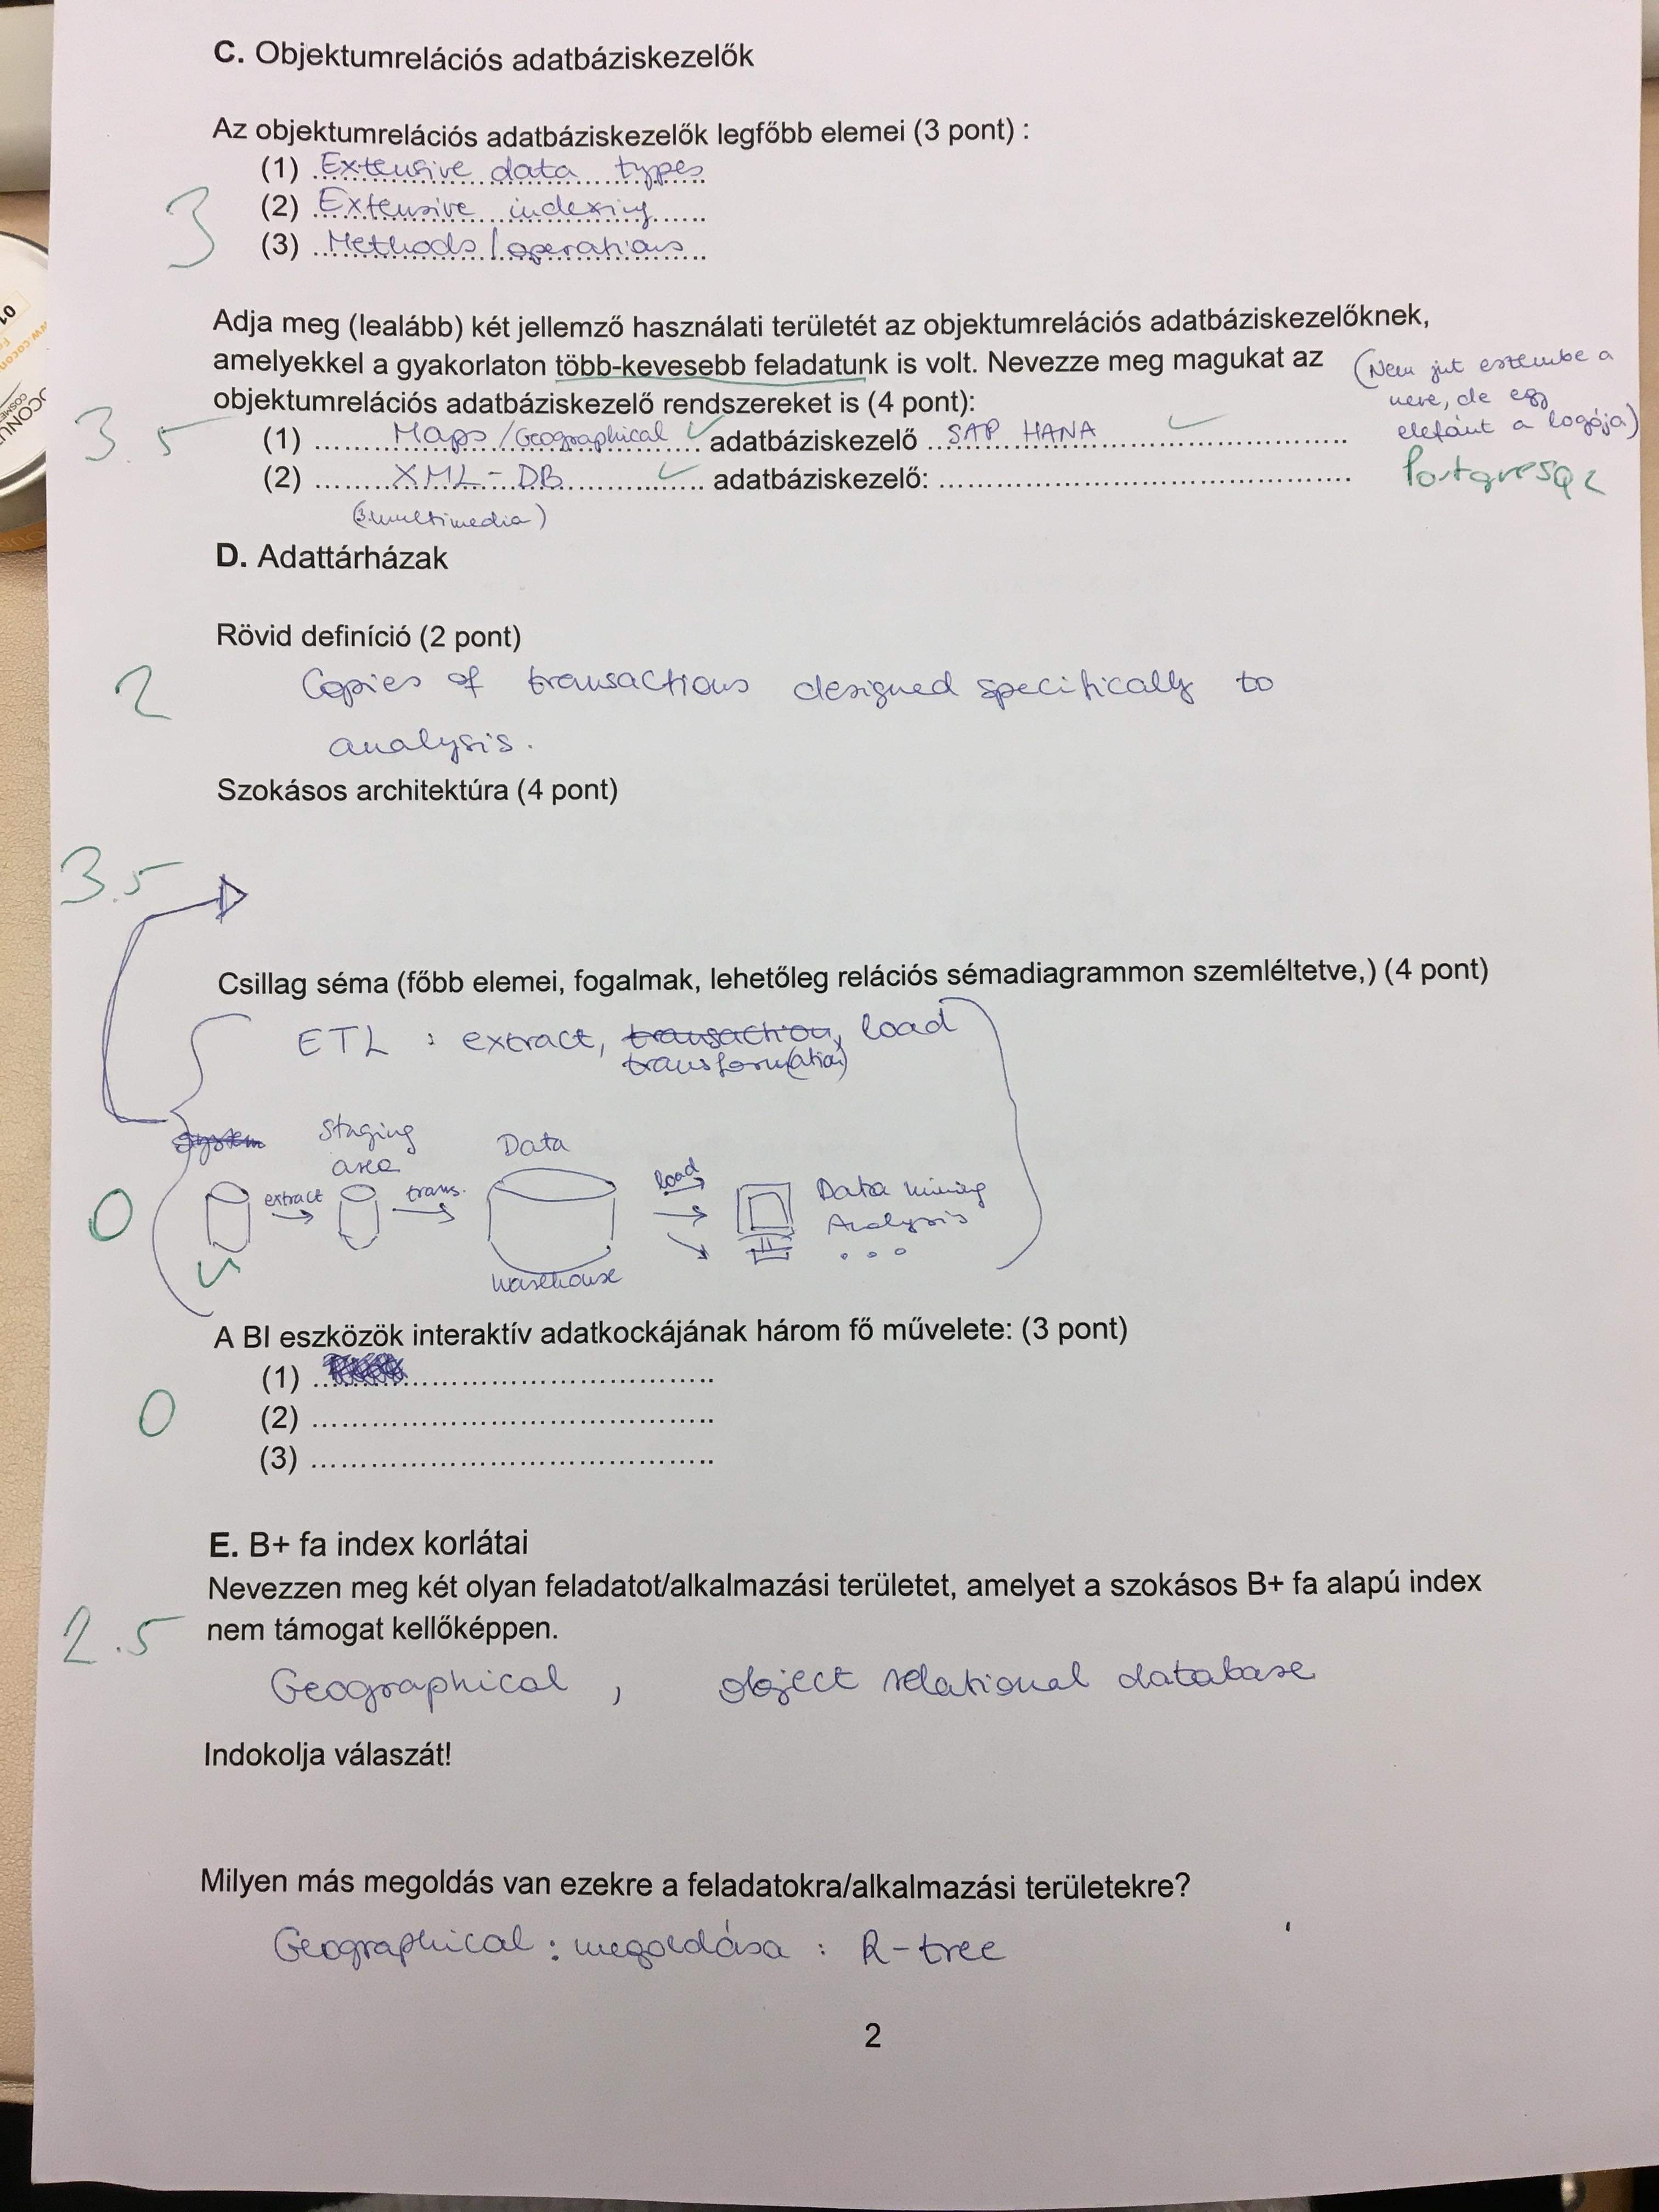 C. Objektumrelációs adatbáziskezelők
Az objektumrelációs adatbáziskezelők legfőbb elemei (3 pont) :
(1) Extensive data types
(2) Extensive indexing
(3) Methods / operations
3
Adja meg (lealább) két jellemző használati területét az objektumrelációs adatbáziskezelőknek,
amelyekkel a gyakorlaton több-kevesebb feladatunk is volt. Nevezze meg magukat az
objektumrelációs adatbáziskezelő rendszereket is (4 pont):
(Nem jut eszembe a
neve, de egy
elefánt a logója)
PostgreSQL
3.5
(1) Maps / Geographical ✓ adatbáziskezelő SAP HANA ✓
(2) XML-DB ✓ adatbáziskezelő:
(3. multimedia)
D. Adattárházak
Rövid definíció (2 pont)
2
Copies of transactions designed specifically to
analysis.
Szokásos architektúra (4 pont)
3.5
Csillag séma (főbb elemei, fogalmak, lehetőleg relációs sémadiagrammon szemléltetve,) (4 pont)
ETL : extract, transaction, load
transform(ation)
system Staging area Data
extract trans. load Data mining
Analysis
...
warehouse
0
A BI eszközök interaktív adatkockájának három fő művelete: (3 pont)
(1)
(2)
(3)
0
E. B+ fa index korlátai
Nevezzen meg két olyan feladatot/alkalmazási területet, amelyet a szokásos B+ fa alapú index
nem támogat kellőképpen.
2.5
Geographical , object relational database
Indokolja válaszát!
Milyen más megoldás van ezekre a feladatokra/alkalmazási területekre?
Geographical : megoldása : R-tree
2